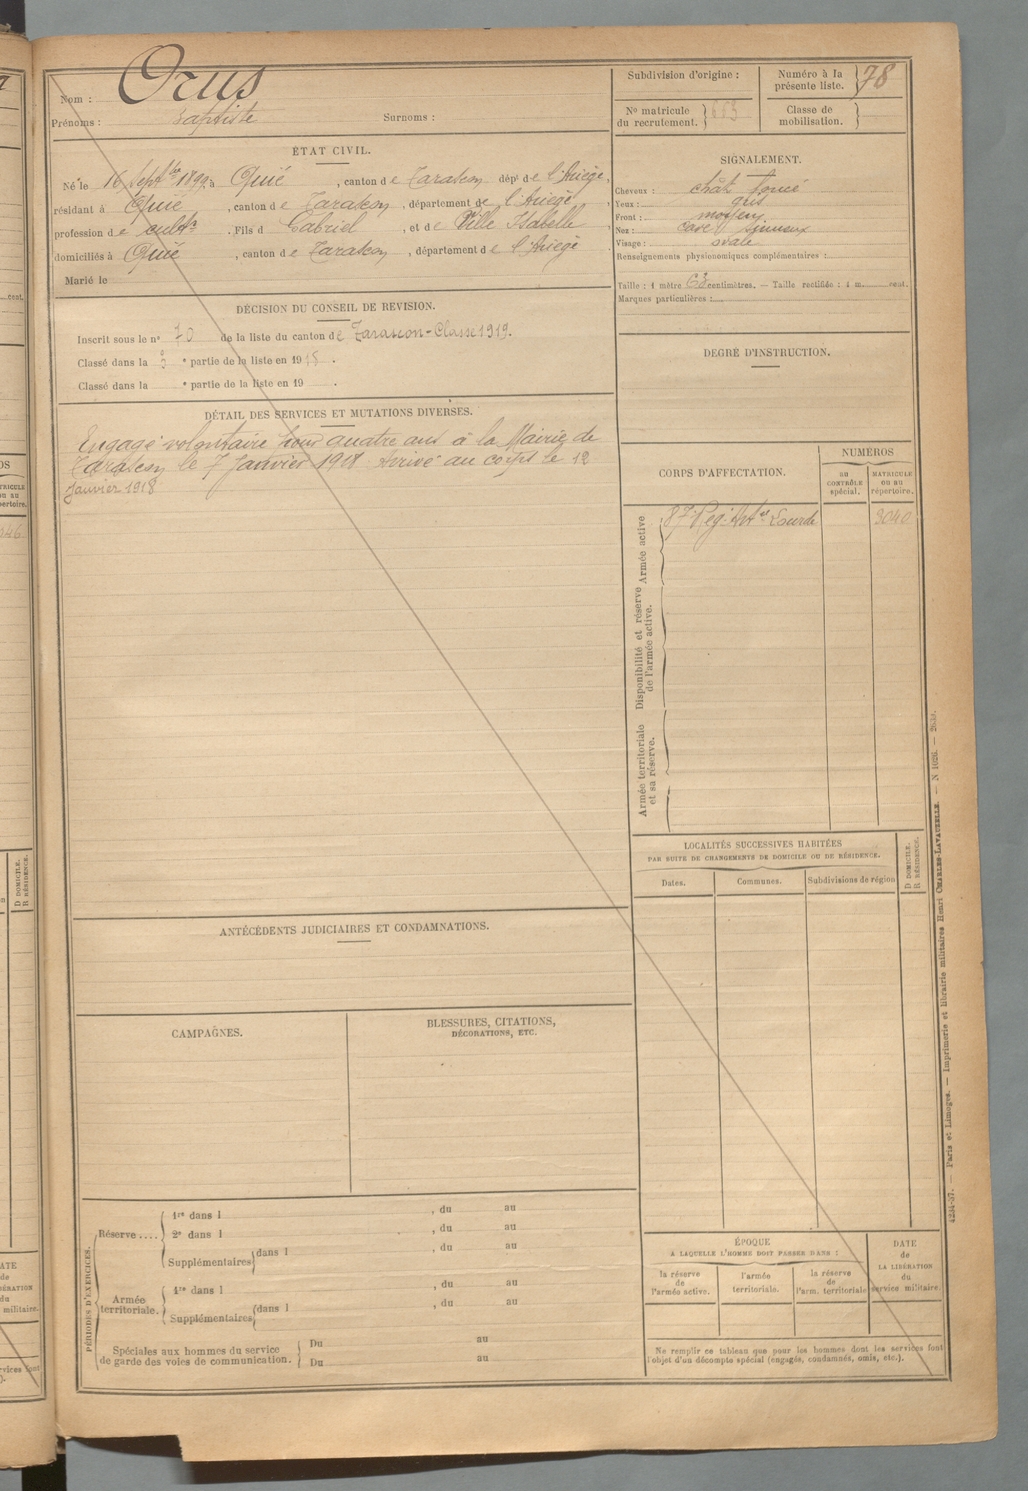 Nom : Orus
Prénoms : Baptiste Surnoms :
Subdivision d'origine :
Numéro à la présente liste. 78
No matricule du recrutement. 663
Classe de mobilisation.
ÉTAT CIVIL.
Né le 16 Septbre 1899 à Quié, canton de Tarascon dépt de l'Ariège,
résidant à Quié, canton de Tarascon, département de l'Ariège,
profession de cultr, Fils d Gabriel, et de Ville Isabelle
domiciliés à Quié, canton de Tarascon, département de l'Ariège
Marié le
SIGNALEMENT.
Cheveux : chât foncé
Yeux : gris
Front : moyen
Nez : cave sinueux
Visage : ovale
Renseignements physionomiques complémentaires :
Taille : 1 mètre 63 centimètres. — Taille rectifiée : 1 m. cent.
Marques particulières :
DÉCISION DU CONSEIL DE REVISION.
Inscrit sous le no 70 de la liste du canton de Tarascon - Classe 1919.
Classé dans la 3 e partie de la liste en 1918.
Classé dans la e partie de la liste en 19 .
DEGRÉ D'INSTRUCTION.
DÉTAIL DES SERVICES ET MUTATIONS DIVERSES.
Engagé volontaire pour quatre ans à la Mairie de
Tarascon le 7 Janvier 1918. Arrivé au corps le 12
Janvier 1918
CORPS D'AFFECTATION.
NUMÉROS
AU CONTRÔLE spécial.
MATRICULE ou au répertoire.
Armée active
87e Rég. Artie Lourde
Disponibilité et réserve de l'armée active.
Armée territoriale et sa réserve.
LOCALITÉS SUCCESSIVES HABITÉES
PAR SUITE DE CHANGEMENTS DE DOMICILE OU DE RÉSIDENCE.
Dates. Communes. Subdivisions de région
D DOMICILE.
R RÉSIDENCE.
ANTÉCÉDENTS JUDICIAIRES ET CONDAMNATIONS.
CAMPAGNES.
BLESSURES, CITATIONS,
DÉCORATIONS, ETC.
PÉRIODES D'EXERCICES.
Réserve....
1re dans l , du au
2e dans l , du au
Supplémentaires dans l , du au
Armée territoriale.
1re dans l , du au
Supplémentaires dans l , du au
Spéciales aux hommes du service
de garde des voies de communication.
Du au
Du au
ÉPOQUE
A LAQUELLE L'HOMME DOIT PASSER DANS :
la réserve de l'armée active.
l'armée territoriale.
la réserve de l'arm. territoriale
DATE
de
LA LIBÉRATION
du
service militaire.
Ne remplir ce tableau que pour les hommes dont les services font
l'objet d'un décompte spécial (engagés, condamnés, omis, etc.).
Paris et Limoges. — Imprimerie et librairie militaires Henri CHARLES-LAVAUZELLE.